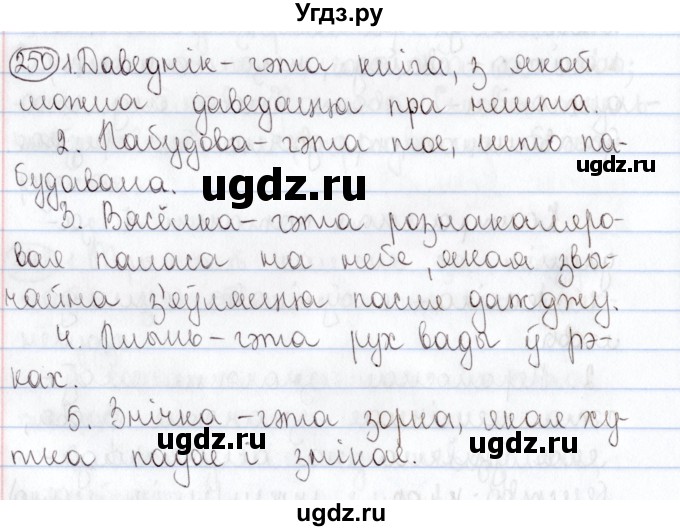 Угдз.ру
250 1. Даведнік – гэта кніга, з якой
можна даведацца пра нешта.
2. Пабудова – гэта тое, што па-
будавана.
ugdz.ru
ugdz.ru
3. Вясёлка – гэта рознакаляро-
вая паласа на небе, якая звы-
чайна з'яўляецца пасля дажджу.
4 Плынь – гэта рух вады ў рэ-
ках.
5. Знічка – гэта зорка, якая ху-
ugdz.ru
ugdz.ru
тка падае і знікае.
ugdz.ru